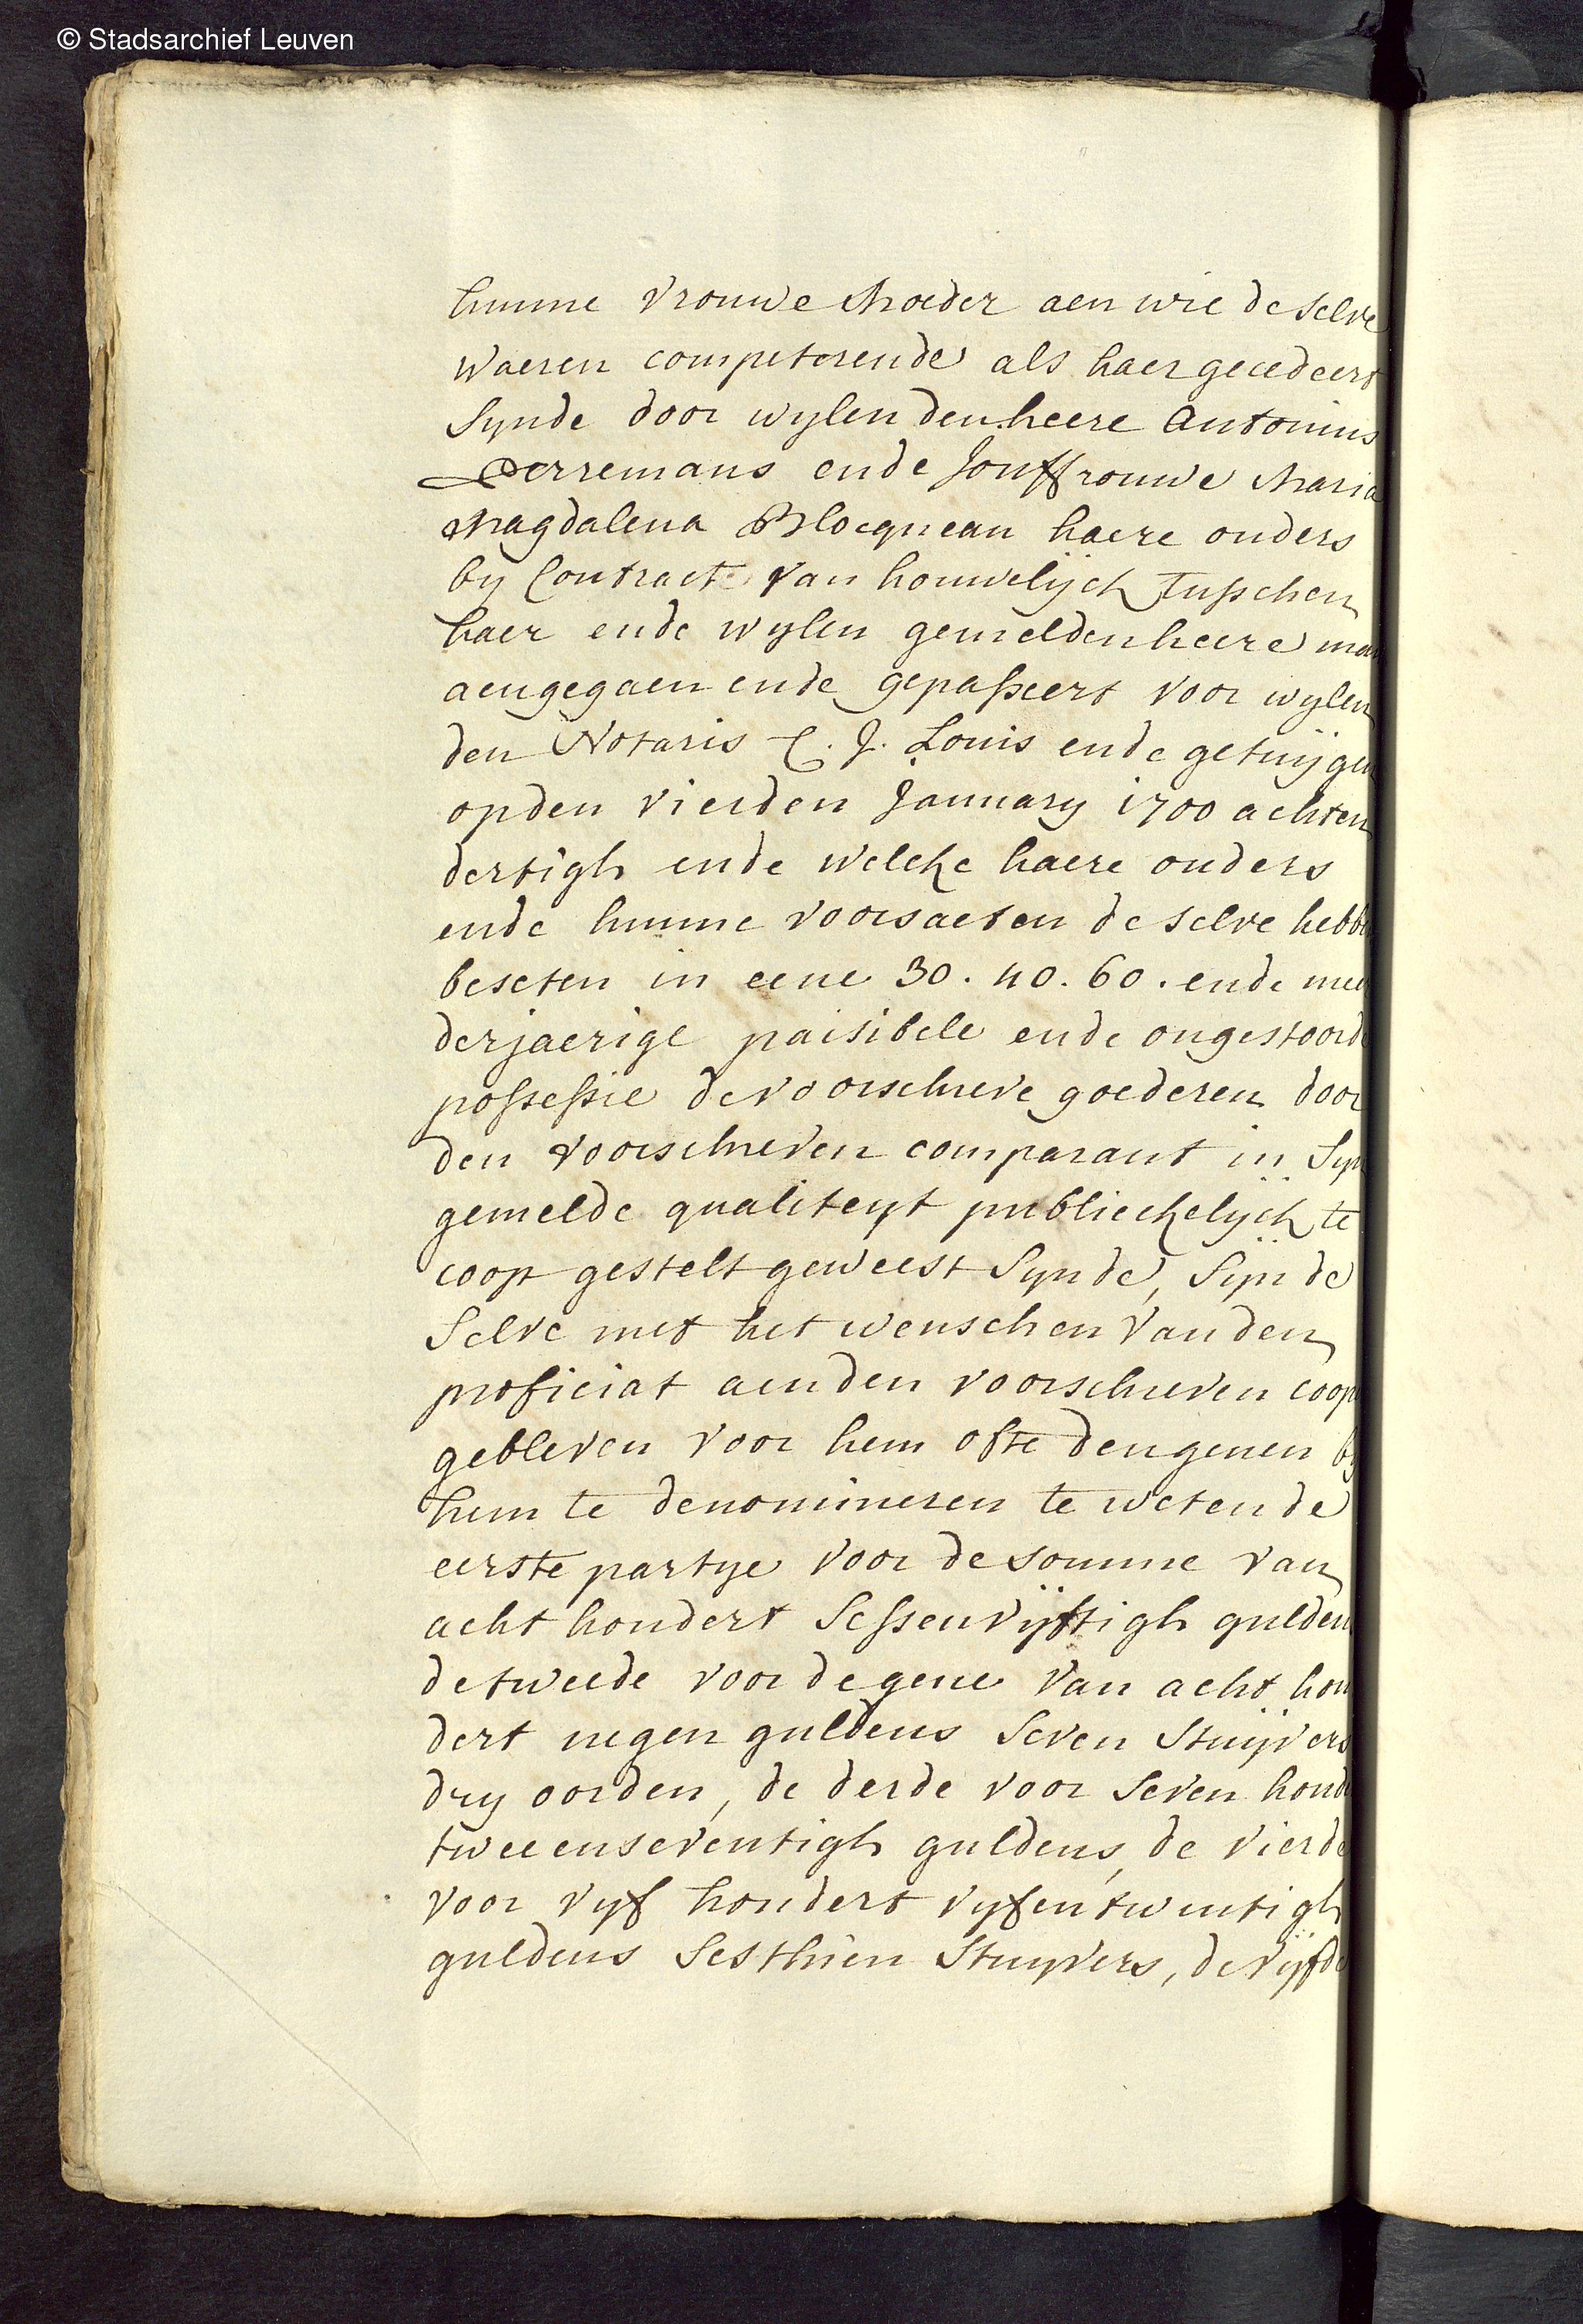 © Stadsarchief Leuven
hunne vrouwe Moeder aen wie de selve
waeren competerende als haer gecedeert
synde door wylen den heere Antonius
Perremans ende Jouffrouwe Maria
Magdalena Blocqueau haere ouders
by Contract van houwelijck tusschen
haer ende wylen gemelden heere man
aengegaen ende gepasseert voor wylen
den Notaris C. J. Louis ende getuijgen
op den vierden January 1700 achten
dertigh ende welcke haere ouders
ende hunne voorsaeten de selve hebben
beseten in eene 30. 40. 60. ende meer
derjaerige paisibele ende ongestoorde
possessie de voorschreve goederen door
den voorschreven comparant in syn
gemelde qualiteyt publieckelijck te
coop gestelt geweest synde, syn de
selve met het wenschen van den
proficiat aen den voorschreven cooper
gebleven voor hem ofte dengenen by
hem te denomineren te weten de
eerste partye voor de somme van
acht hondert sessenvijftigh gulden
de tweede voor de gene van acht hon
dert negen guldens seven stuijvers
dry oorden, de derde voor seven hondert
tweeenseventigh guldens, de vierde
voor vyf hondert vyfentwintigh
guldens sesthien stuyvers, de vijfde